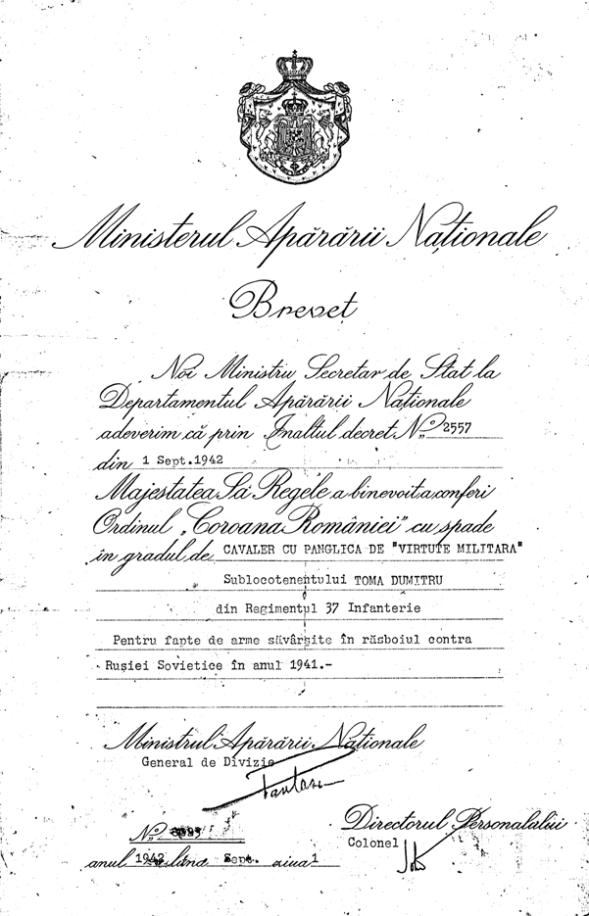 Ministerul Apărării Naționale
Brevet
Noi Ministru Secretar de Stat la
Departamentul Apărării Naționale
adeverim că prin Inaltul decret No 2557
din 1 Sept.1942
Majestatea Sa Regele a binevoit a conferi
Ordinul „Coroana României” cu spade
în gradul de CAVALER CU PANGLICA DE "VIRTUTE MILITARA"
Sublocotenentului TOMA DUMITRU
din Regimentul 37 Infanterie
Pentru fapte de arme săvârșite în răsboiul contra
Rusiei Sovietice în anul 1941.-
Ministrul Apărării Naționale
General de Divizie
Directorul Personalului
Colonel
No
anul 1942 luna Sept. ziua 1